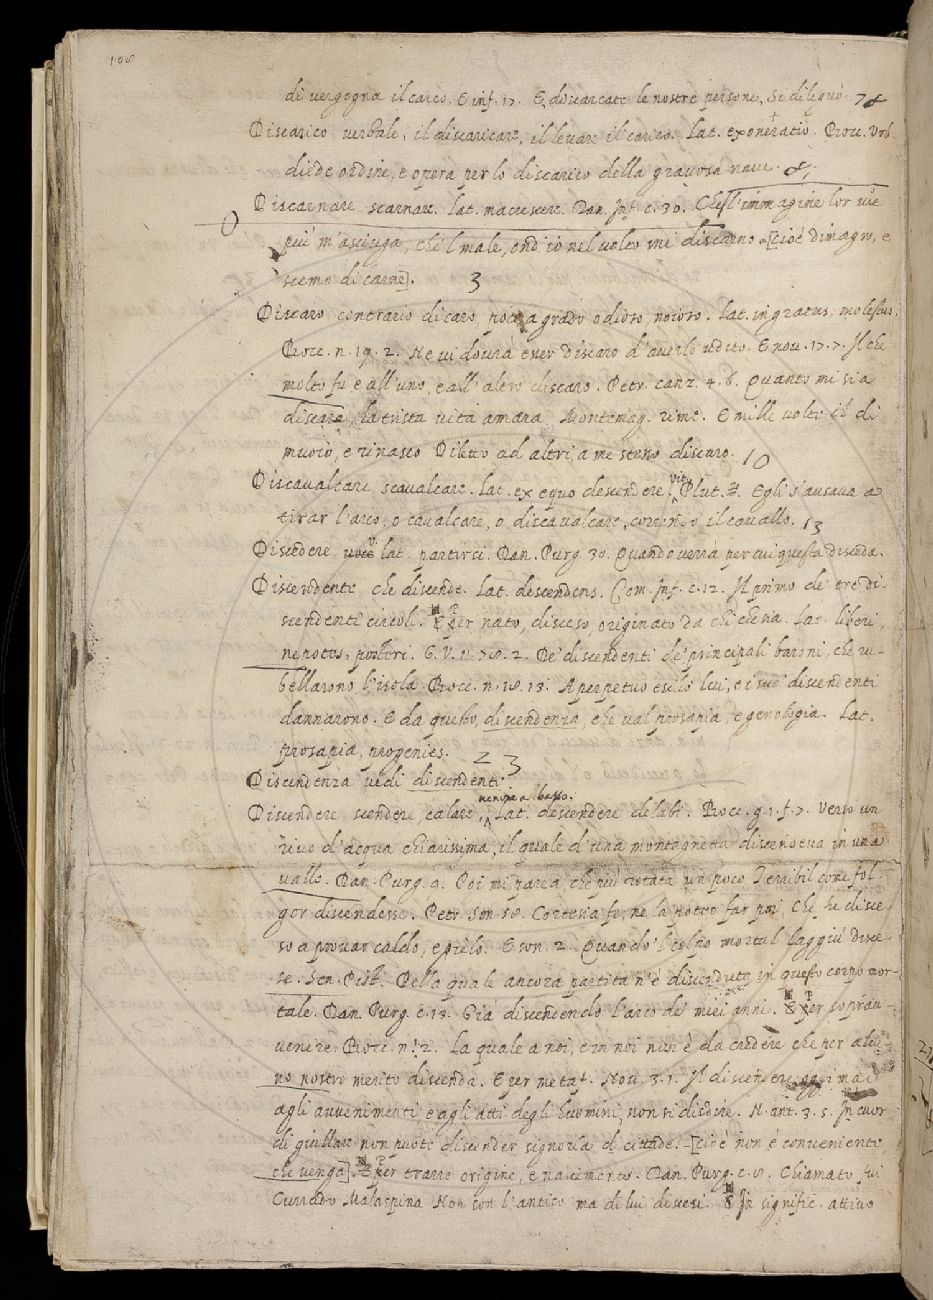 108
di vergogna il carco. E inf. 17. E, discarcate le nostre persone, Si dileguò 78
Discarico verbale, il discaricare, il levare il carico. Lat. exoneratio. Bocc. Vrb.
diede ordine, e opera per lo discarico della gravosa nave. 8,
Discarnare scarnare. lat. macrescere. Dan. Inf. c. 30. Che l'immagine lor vie
più m'asciuga, che 'l male, ond' io nel volto mi discarno [cioè dimagro, e
scemo di carne]. 3
Discaro contrario di caro, poco a grado odioso, noioso. Lat. ingratus, molestus.
Bocc. n. 19. 2. Ne vi dovrà esser discaro d'averlo udito. E nov. 17. 7. Il che
molto fu e all'uno, e all' altro discaro. Petr. canz. 4. 6. Quanto mi sia
discara la trista vita amara Montemag. rime. E mille volte il dì
muoio, e rinasco Diletto ad altri, a me stesso discaro. 10
Discavalcare, scavalcare. Lat. ex equo descendere. Vit. Plut. Egli s'ausava a
tirar l'arco, o cavalcare, o discavalcare, correndo il cavallo. 13
Discedere, voce lat. partirci. Dan. Purg. 30. Quando verrà per cui questa disceda.
Discendente che discende. Lat. descendens. Com. Inf. c. 12. Il primo de' tre di-
scendenti circoli. E per nato, disceso, originato da chi che sia. Lat. liberi,
nepotes, posteri. G. V. n. 78. 2. De' discendenti de' principali baroni, che ri-
bellarono l'isola. Bocc. n. 18. 13. A perpetuo esilio lui, e i suoi discendenti
dannarono. E da questo, discendenza, che val prosapia, e genologia. Lat.
prosapia, progenies. 23
Discendenza vedi discendente
Discendere scendere, calare, venire a basso. Lat. descendere delabi. Bocc. g. 1. f. 7. Verso un
rivo d'acqua chiarissima, il quale d'una montagnetta discendeva in una
valle. Dan. Purg. 9. Poi mi parea che più rotata un poco Terribil come fol-
gor discendesse. Petr. son. 58. Cortesia fe, ne la potteo far poi, Che fu disce-
so a provar caldo, e gielo. E son. 2. Quando 'l colpo mortal laggiù disce-
se. Sen. Pist. Della quale ancora partita n'è discenduta in questo corpo mor-
tale. Dan. Purg. c. 13. Già discendendo l'arco de' miei anni. E per soprav-
venire. Bocc. n. 1. 2. La quale a noi, e in noi non è da credere che per alcu-
no nostro merito discenda. E per metaf. Nov. 3. 1. Il discendere oggimai
agli avvenimenti e agli atti degli huomini, non si disdire. N. ant. 3. 5. In cuor
di giullare non puote discender signoria di cittade. [cioè non è conveniente
che venga]. E per trarre origine, e nascimento. Dan. Purg. c. 8. Chiamato fui
Currado Malaspina Non son l'antico ma di lui discesi. E In signific. attivo